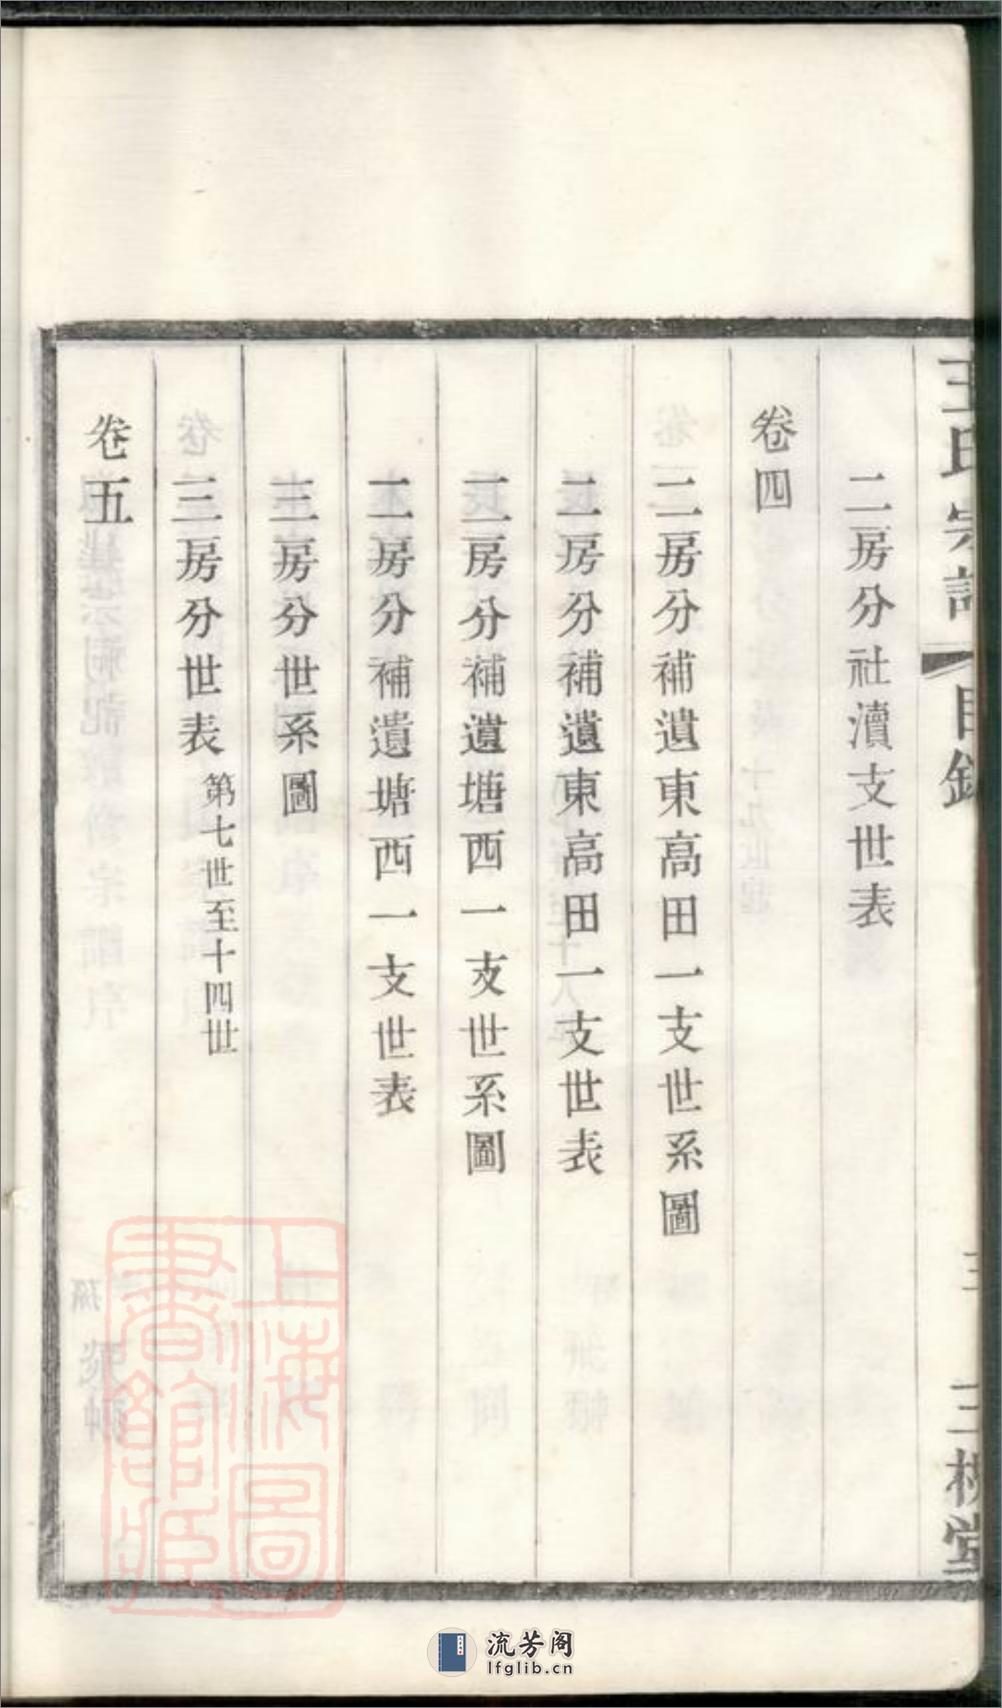 王氏宗譜 目錄 三 三槐堂
二房分社瀆支世表
卷四
二房分補遺東高田一支世系圖
二房分補遺東高田一支世表
二房分補遺塘西一支世系圖
二房分補遺塘西一支世表
三房分世系圖
三房分世表 第七世至十四世
卷五
上海圖書館藏
流芳阁
lfglib.cn